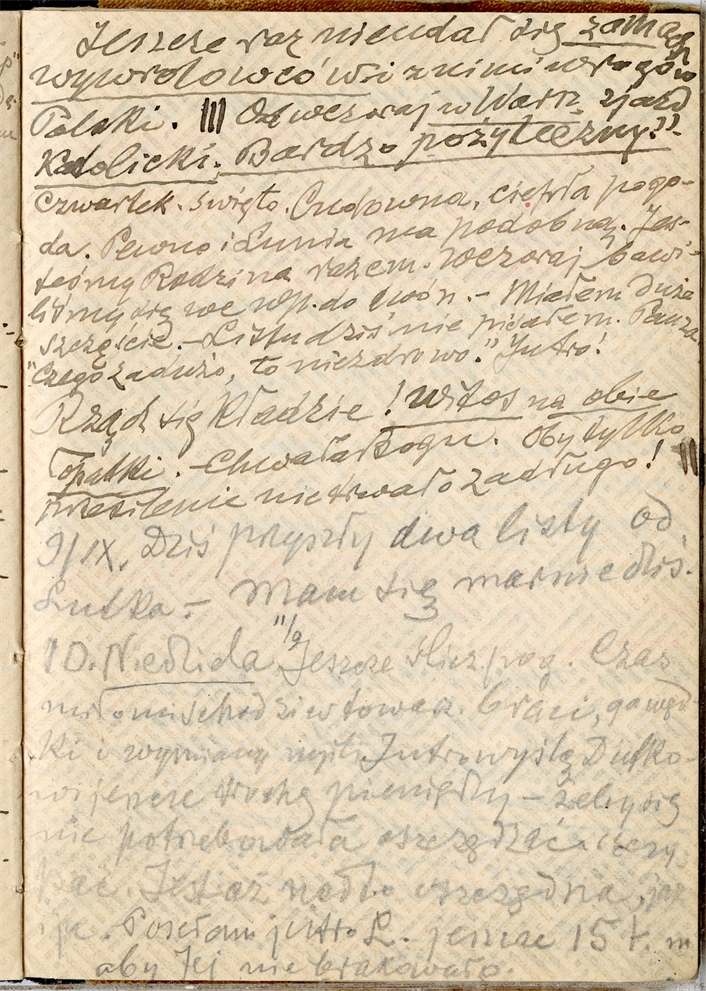 Jeszcze raz nie udał się zamach
wywrotowców i z nimi wrogów
Polski. ||| Od wczoraj w Warsz. zjazd
Katolicki. Bardzo pożyteczny.
Czwartek. Święto. Cudowna, ciepła pogo-
da. Pewno i Lunia ma podobną. Jes-
teśmy Rodzina razem. Wczoraj bawi-
liśmy się we Wp. do Lwón. – Miałem duże
szczęście. – Listu dziś nie pisałem. Pauza
"Czego zadużo, to niezdrowo." Jutro!
Rząd się kładzie! Witos na obie
łopatki. – Chwała Bogu. Oby tylko
przesilenie nie trwało za długo! ||
9/IX. Dziś przyszły dwa listy od
Lutka. – Mam się marnie dziś.
10. Niedziela 11/9 Jeszcze śliz. pog. Czas
miło mi schodzi w towarz. braci, gawęd-
ki i wymiany myśli. Jutro wyślę Dutko-
wi jeszcze trochę pieniędzy – żeby się
nie potrzebowała oszczędzać
Jest aż nadto oszczędna, jaz
i ja. Posełam jutro L. jeszcze 15 t. m
aby Jej nie brakowało.